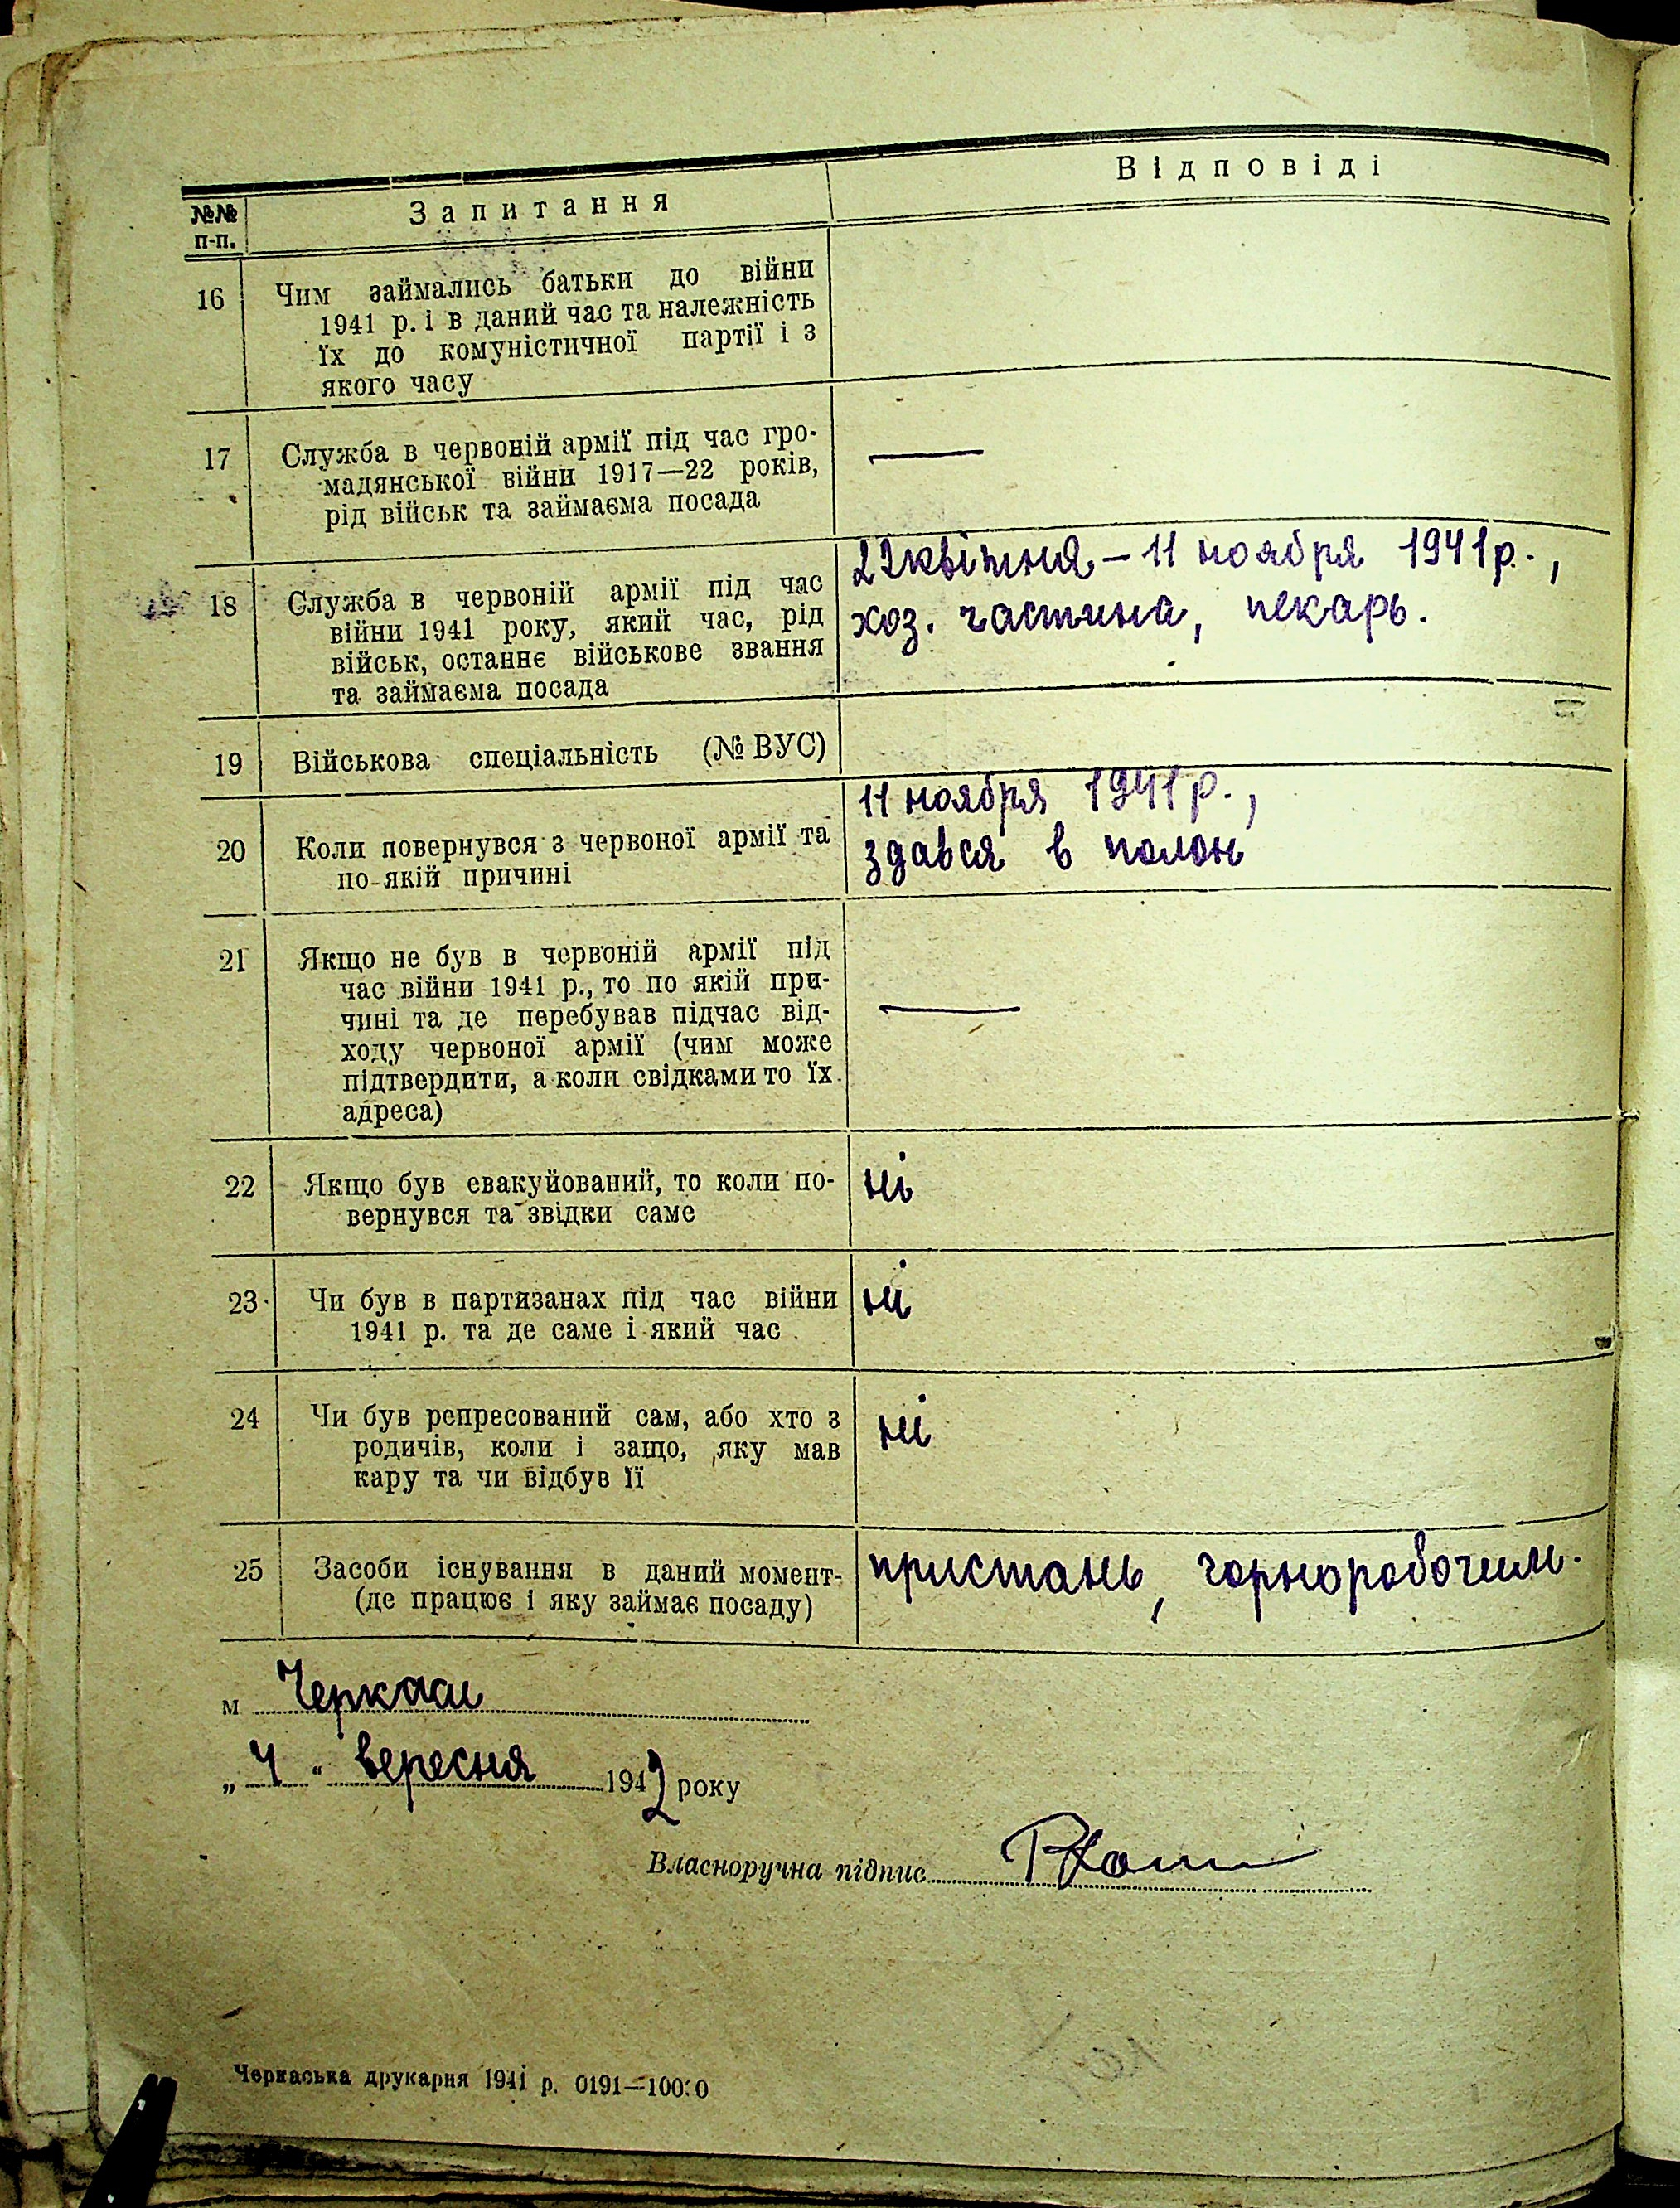 №№ п-п.
Запитання
Відповіді
16
Чим займались батьки до війни
1941 р. і в даний час та належність
їх до комуністичної партії і з
якого часу
17
Служба в червоній армії під час гро-
мадянської війни 1917—22 років,
рід військ та займаєма посада
—
18
Служба в червоній армії під час
війни 1941 року, який час, рід
військ, останнє військове звання
та займаєма посада
22 квітня – 11 ноября 1941 р.,
хоз. частина, пекарь.
19
Військова спеціальність (№ ВУС)
20
Коли повернувся з червоної армії та
по якій причині
11 ноября 1941 р.,
здався в полон
21
Якщо не був в червоній армії під
час війни 1941 р., то по якій при-
чині та де перебував підчас від-
ходу червоної армії (чим може
підтвердити, а коли свідками то їх
адреса)
—
22
Якщо був евакуйований, то коли по-
вернувся та звідки саме
ні
23
Чи був в партизанах під час війни
1941 р. та де саме і який час
ні
24
Чи був репресований сам, або хто з
родичів, коли і защо, яку мав
кару та чи відбув її
ні
25
Засоби існування в даний момент
(де працює і яку займає посаду)
пристань, чорноробочим.
м Черкаси
„4“ вересня 1942 року
Власноручна підпис
Черкаська друкарня 1941 р. 0191—10000